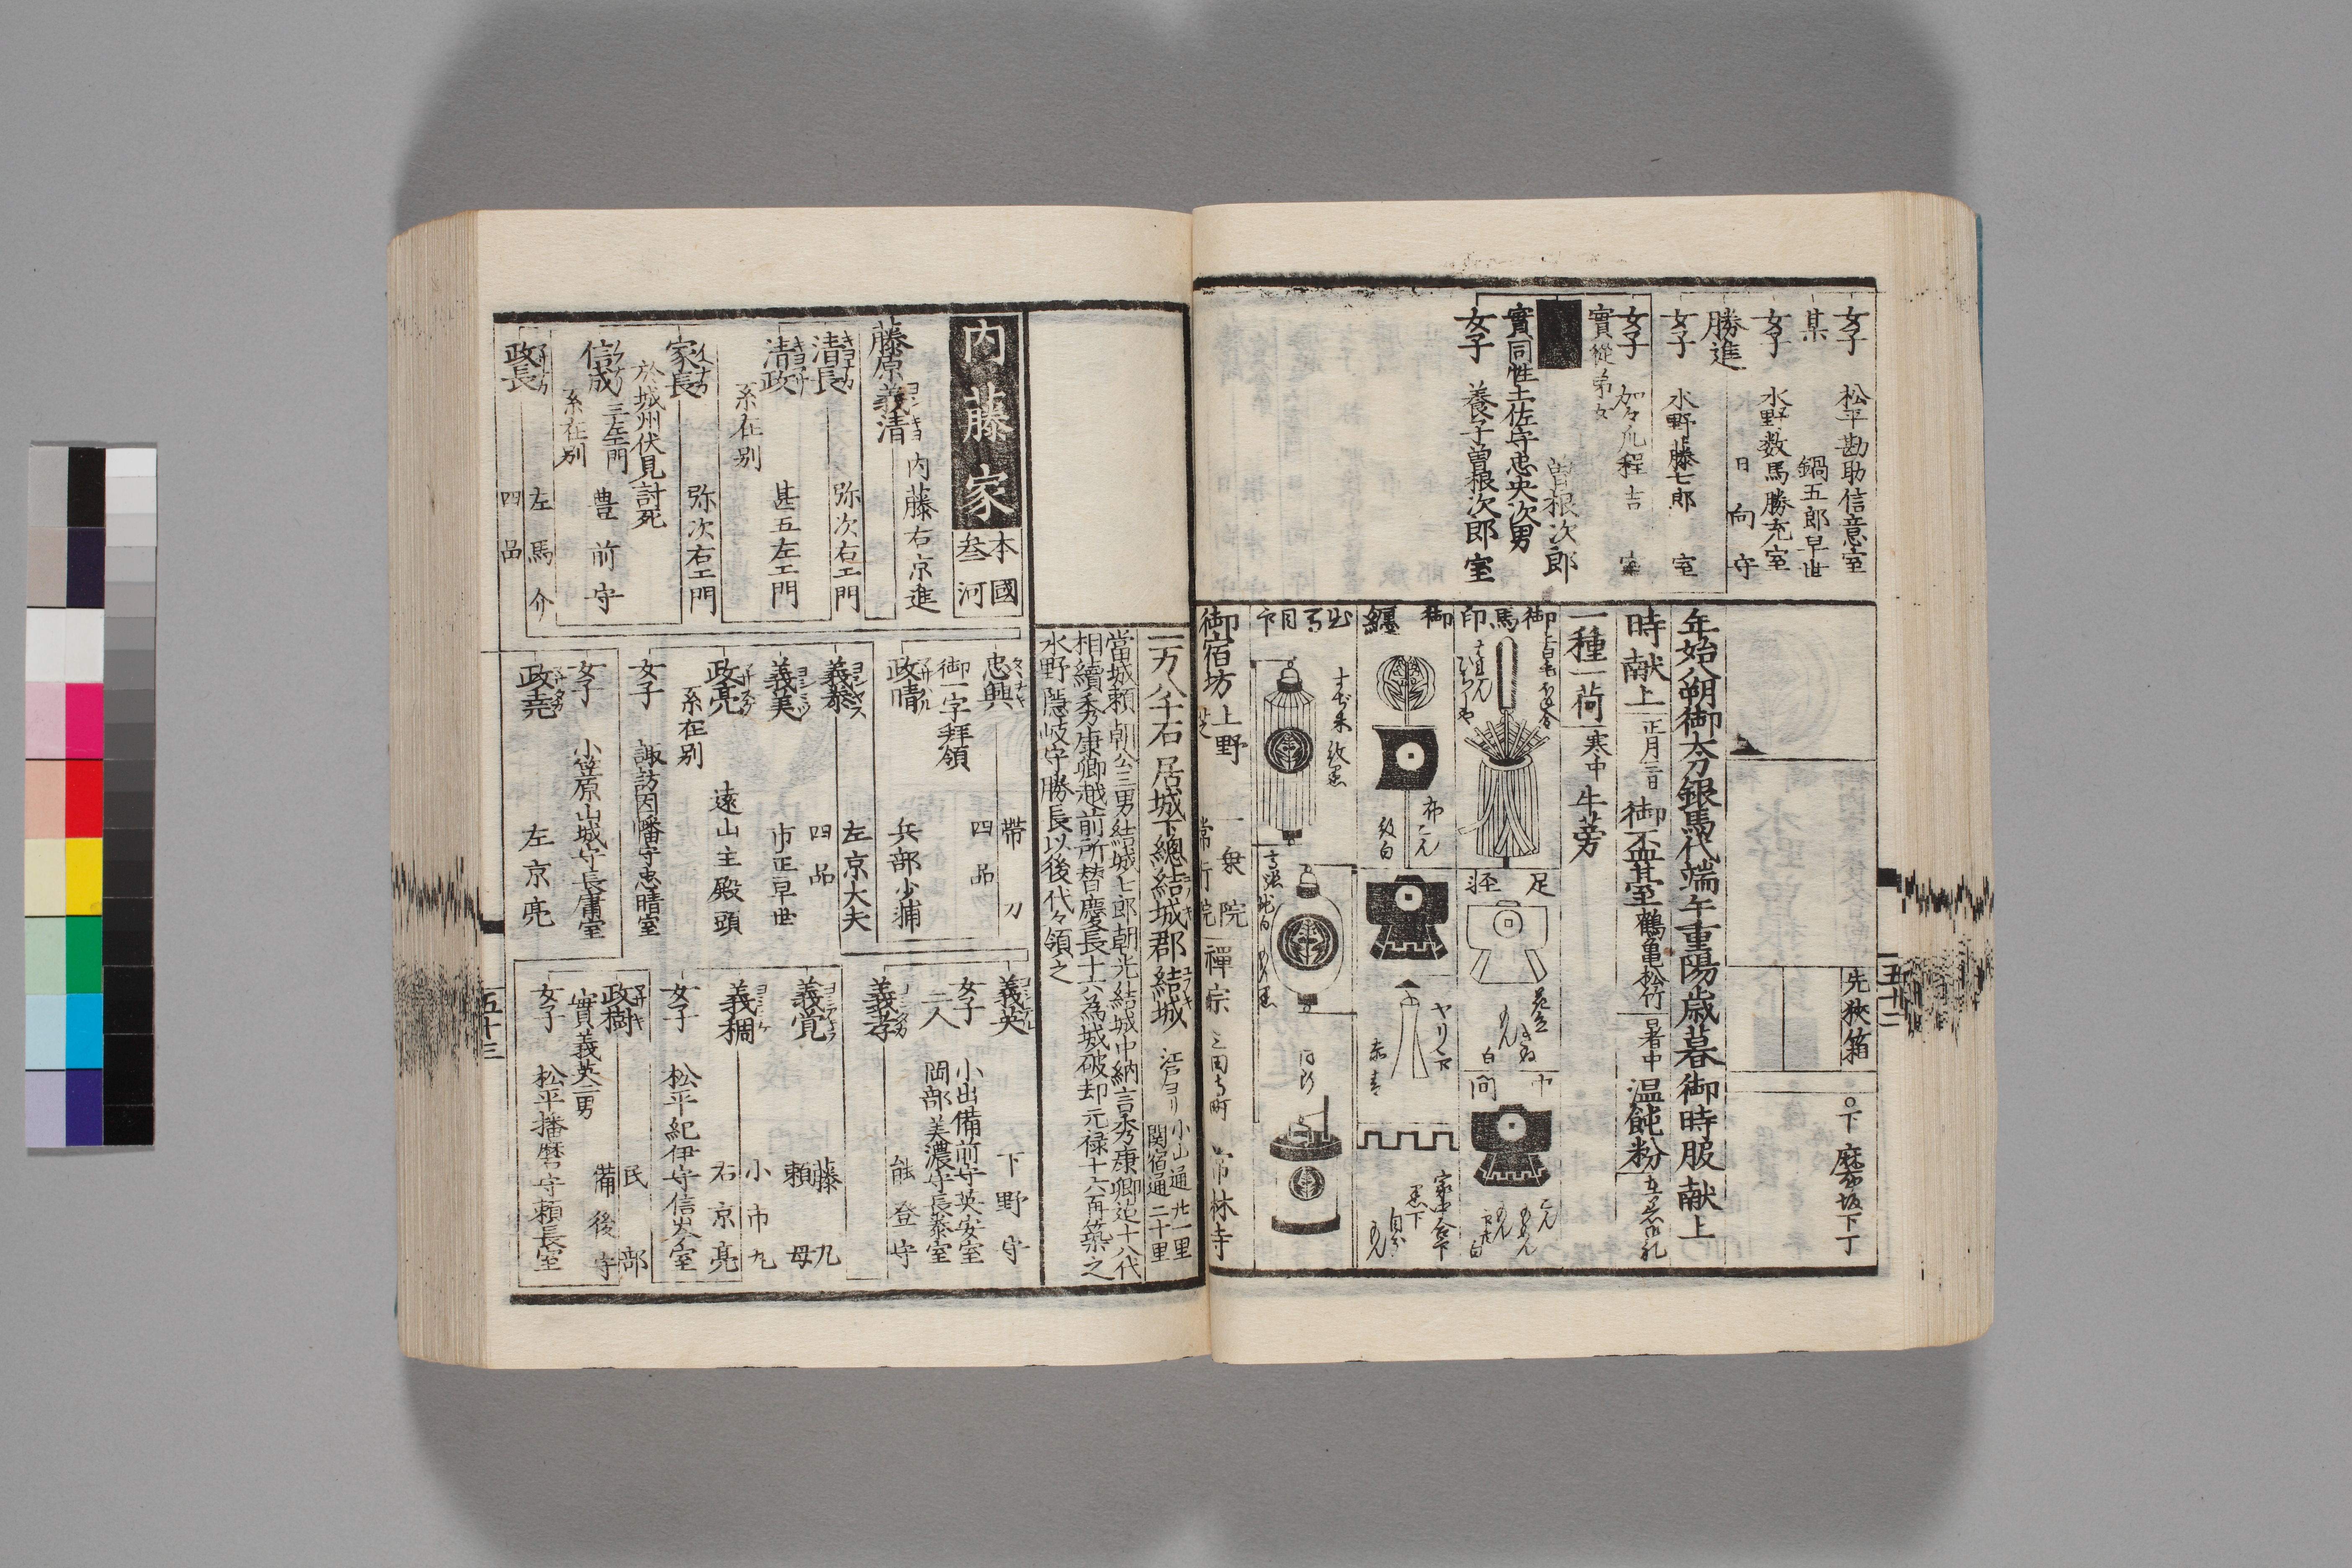 女子 松平勘助信意室
某 鍋五郎早世
女子 水野数馬勝充室
勝進 日向守
女子 水野勝七郎室
女子 室
實從弟女
曽根次郎
實同性土佐守忠央次男
女子 養子曽根次郎室
先挾箱
○下 麻布坂下丁
年始八朔御太刀銀馬代端午重陽歳暮御時服献上
時献上 正月三日 御盃臺 鶴亀松竹 暑中 温飩粉
一種一荷 寒中 牛蒡
御馬印
足
白
中間
御纏
布こん
紋白
御宿坊 上野 一乗院
常行院
禪宗 常林寺
一万八千石 居城下總結城郡結城 江戸ヨリ 小山通廿一里 関宿通二十里
當城頼朝公三男結城七郎朝光結城中納言秀康卿迄十八代
相續秀康卿越前所替慶長十六為城破却元禄十六再築之
水野隱岐守勝長以後代々領之
内藤家 本國 叁河
藤原義清 内藤右京進
清長 弥次右エ門
清政 甚五左エ門
系在別
家長 弥次右エ門
於城州伏見討死
信成 三左エ門 豊前守
系在別
政長 左馬介
四品
忠興 帯刀
四品
御一字拜領
政晴 兵部少輔
義泰 左京大夫
四品
義美 市正早世
政亮 遠山主殿頭
系在別
女子 諏訪因幡守忠晴室
女子 小笠原山城守長庸室
政尭 左京亮
義英 下野守
女子 小出備前守英安室
二人 岡部美濃守長泰室
義孝 能登守
義覚 藤丸
頼母
義稠 小市九
右京亮
女子 松平紀伊守信岑室
政樹 民部
備後守
實義英二男
女子 松平播磨守頼長室
五十三